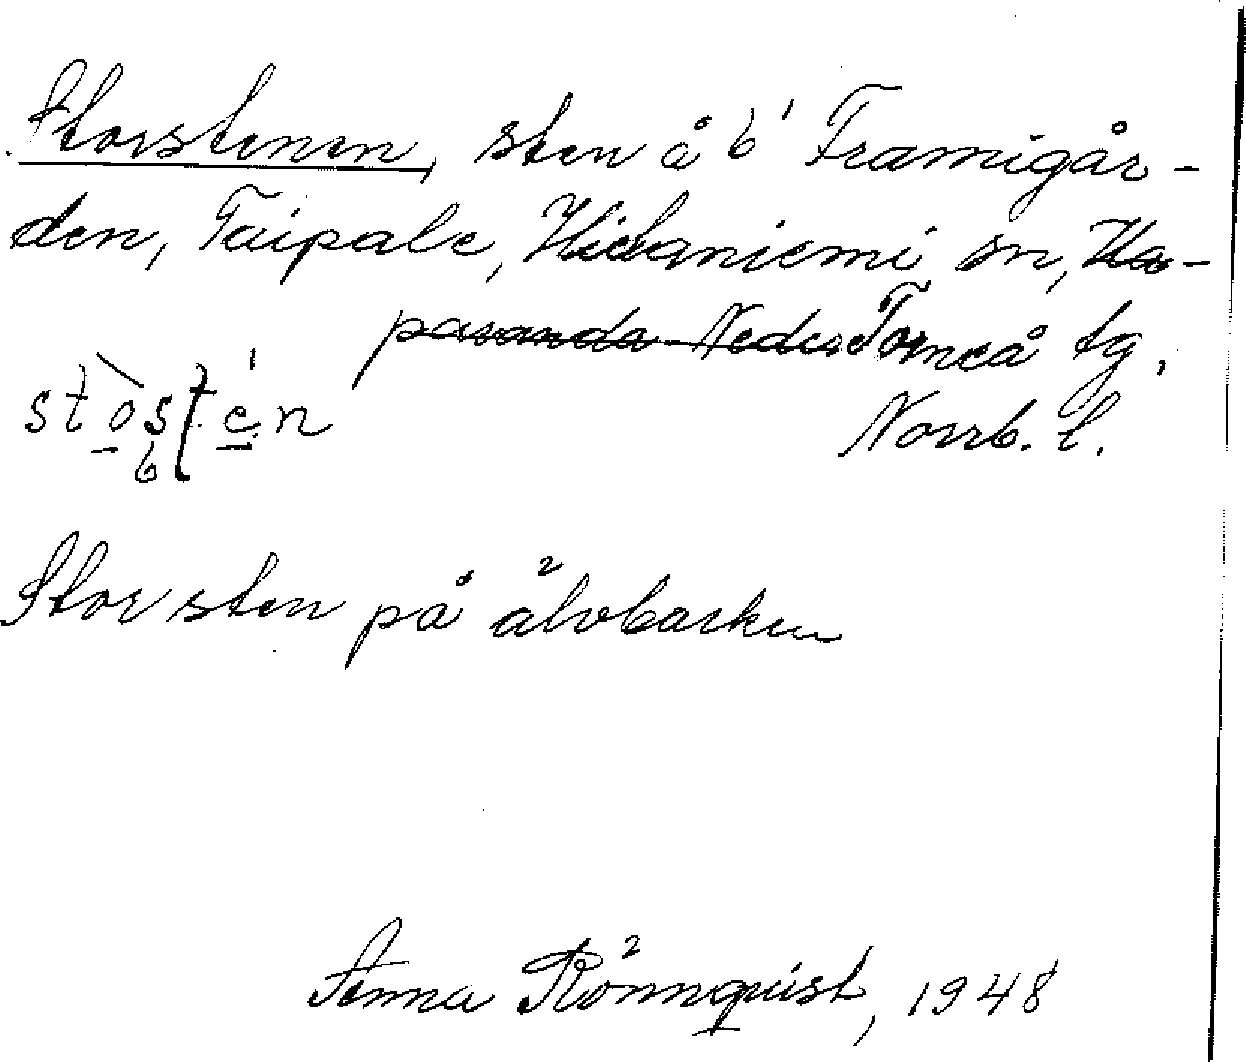 Storstenen, sten å 6¹ Framigår-
den, Taipale, Hietaniemi sn, Ha-
paranda Neder Torneå tg,
Norrb. l.
Stor sten på älvbacken
Anna Rönnquist, 1948